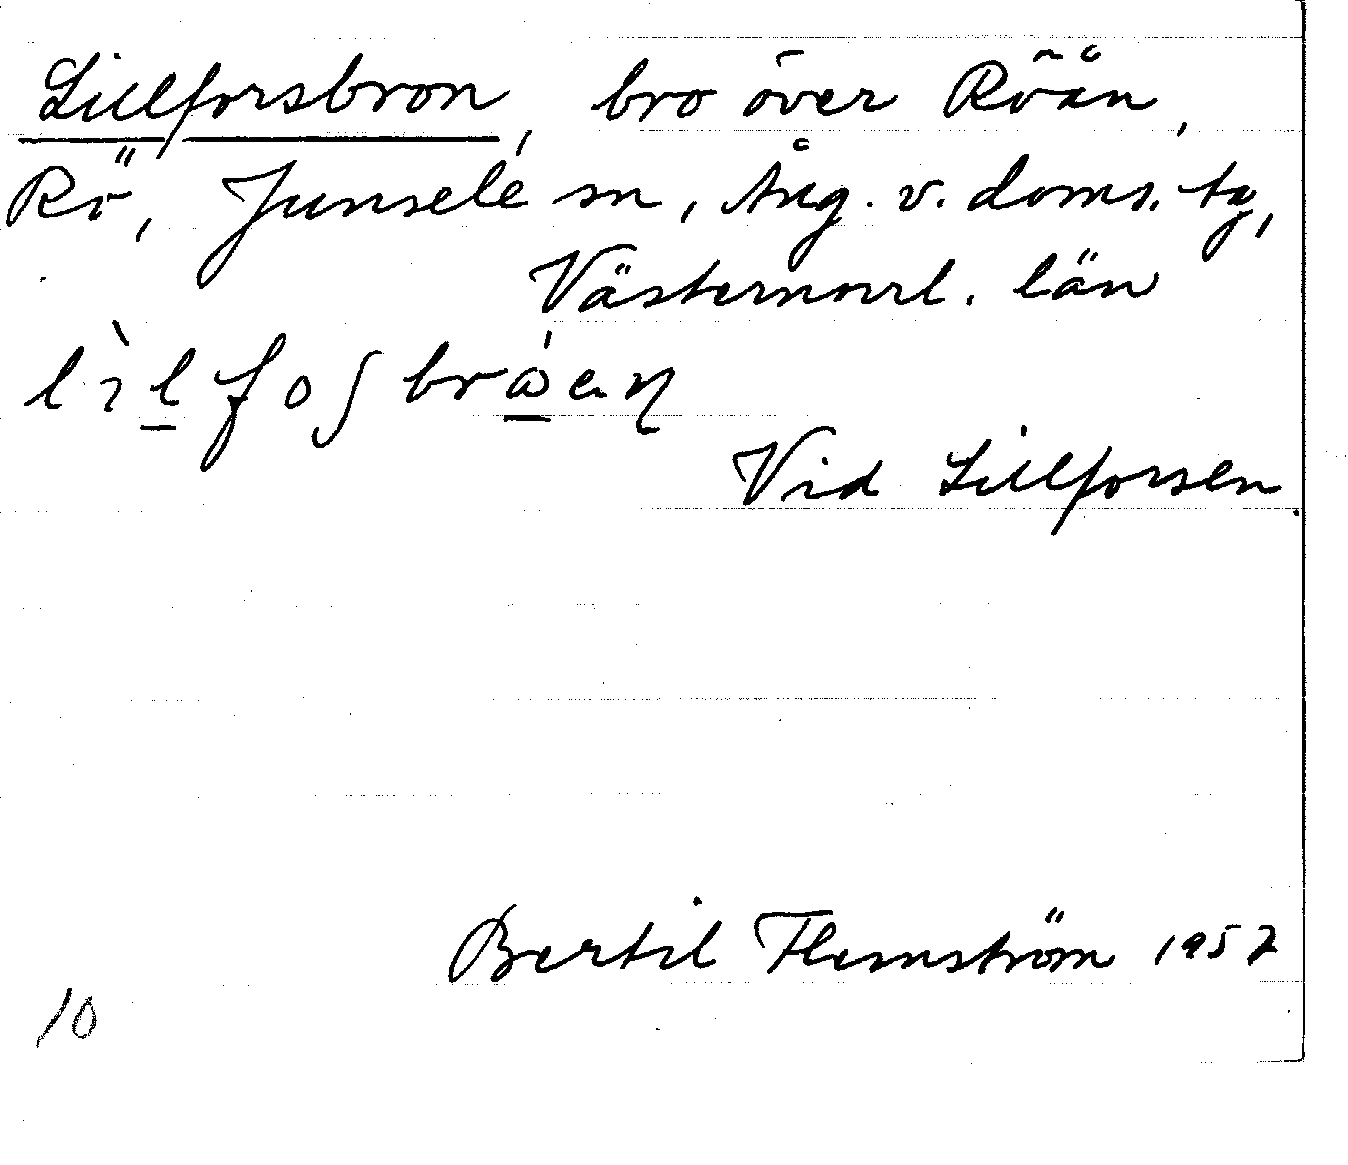 Lillforsbron, bro över Röån,
Rö, Junsele sn, Ång. v. doms. tg,
Västernorrl. län
Vid Lillforsen
Bertil Flemström 1957
10